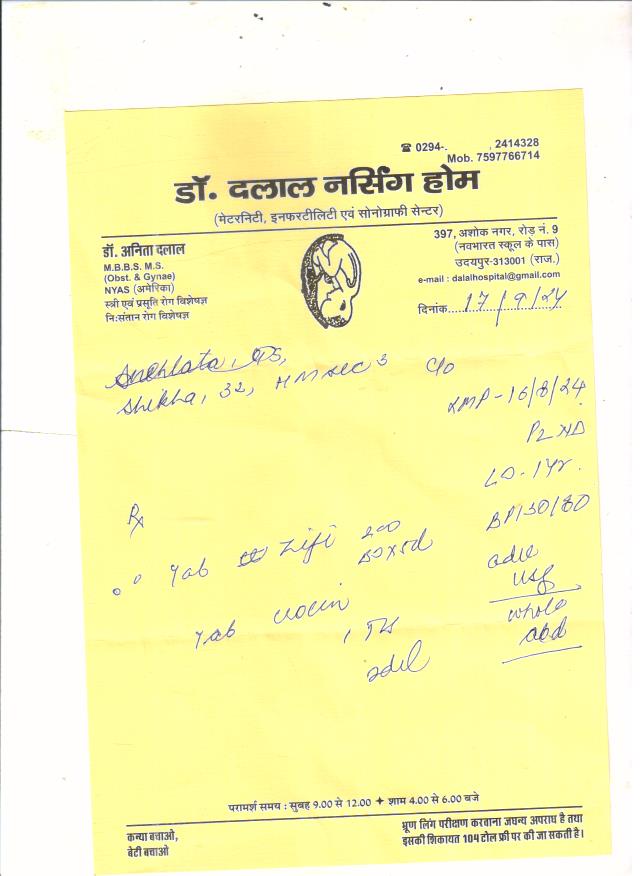 ☎ 0294-. , 2414328
Mob. 7597766714
डॉ. दलाल नर्सिंग होम
(मेटरनिटी, इनफरटीलिटी एवं सोनोग्राफी सेन्टर)
डॉ. अनिता दलाल
M.B.B.S. M.S.
(Obst. & Gynae)
NYAS (अमेरिका)
स्त्री एवं प्रसूति रोग विशेषज्ञ
नि:संतान रोग विशेषज्ञ
397, अशोक नगर, रोड़ नं. 9
(नवभारत स्कूल के पास)
उदयपुर-313001 (राज.)
e-mail : dalalhospital@gmail.com
दिनांक.....17/9/24
Shikha, 32, HM sec 3
C/o
LMP-16/8/24
P2 ND
LD-1yr.
BP130/80
Rx
Tab Zifi 200
BD x 5d
adv
USG
whole
abd
Tab crocin
1 TDS
परामर्श समय : सुबह 9.00 से 12.00 ✦ शाम 4.00 से 6.00 बजे
कन्या बचाओ,
बेटी बचाओ
भ्रूण लिंग परीक्षण करवाना जघन्य अपराध है तथा
इसकी शिकायत 104 टोल फ्री पर की जा सकती है।